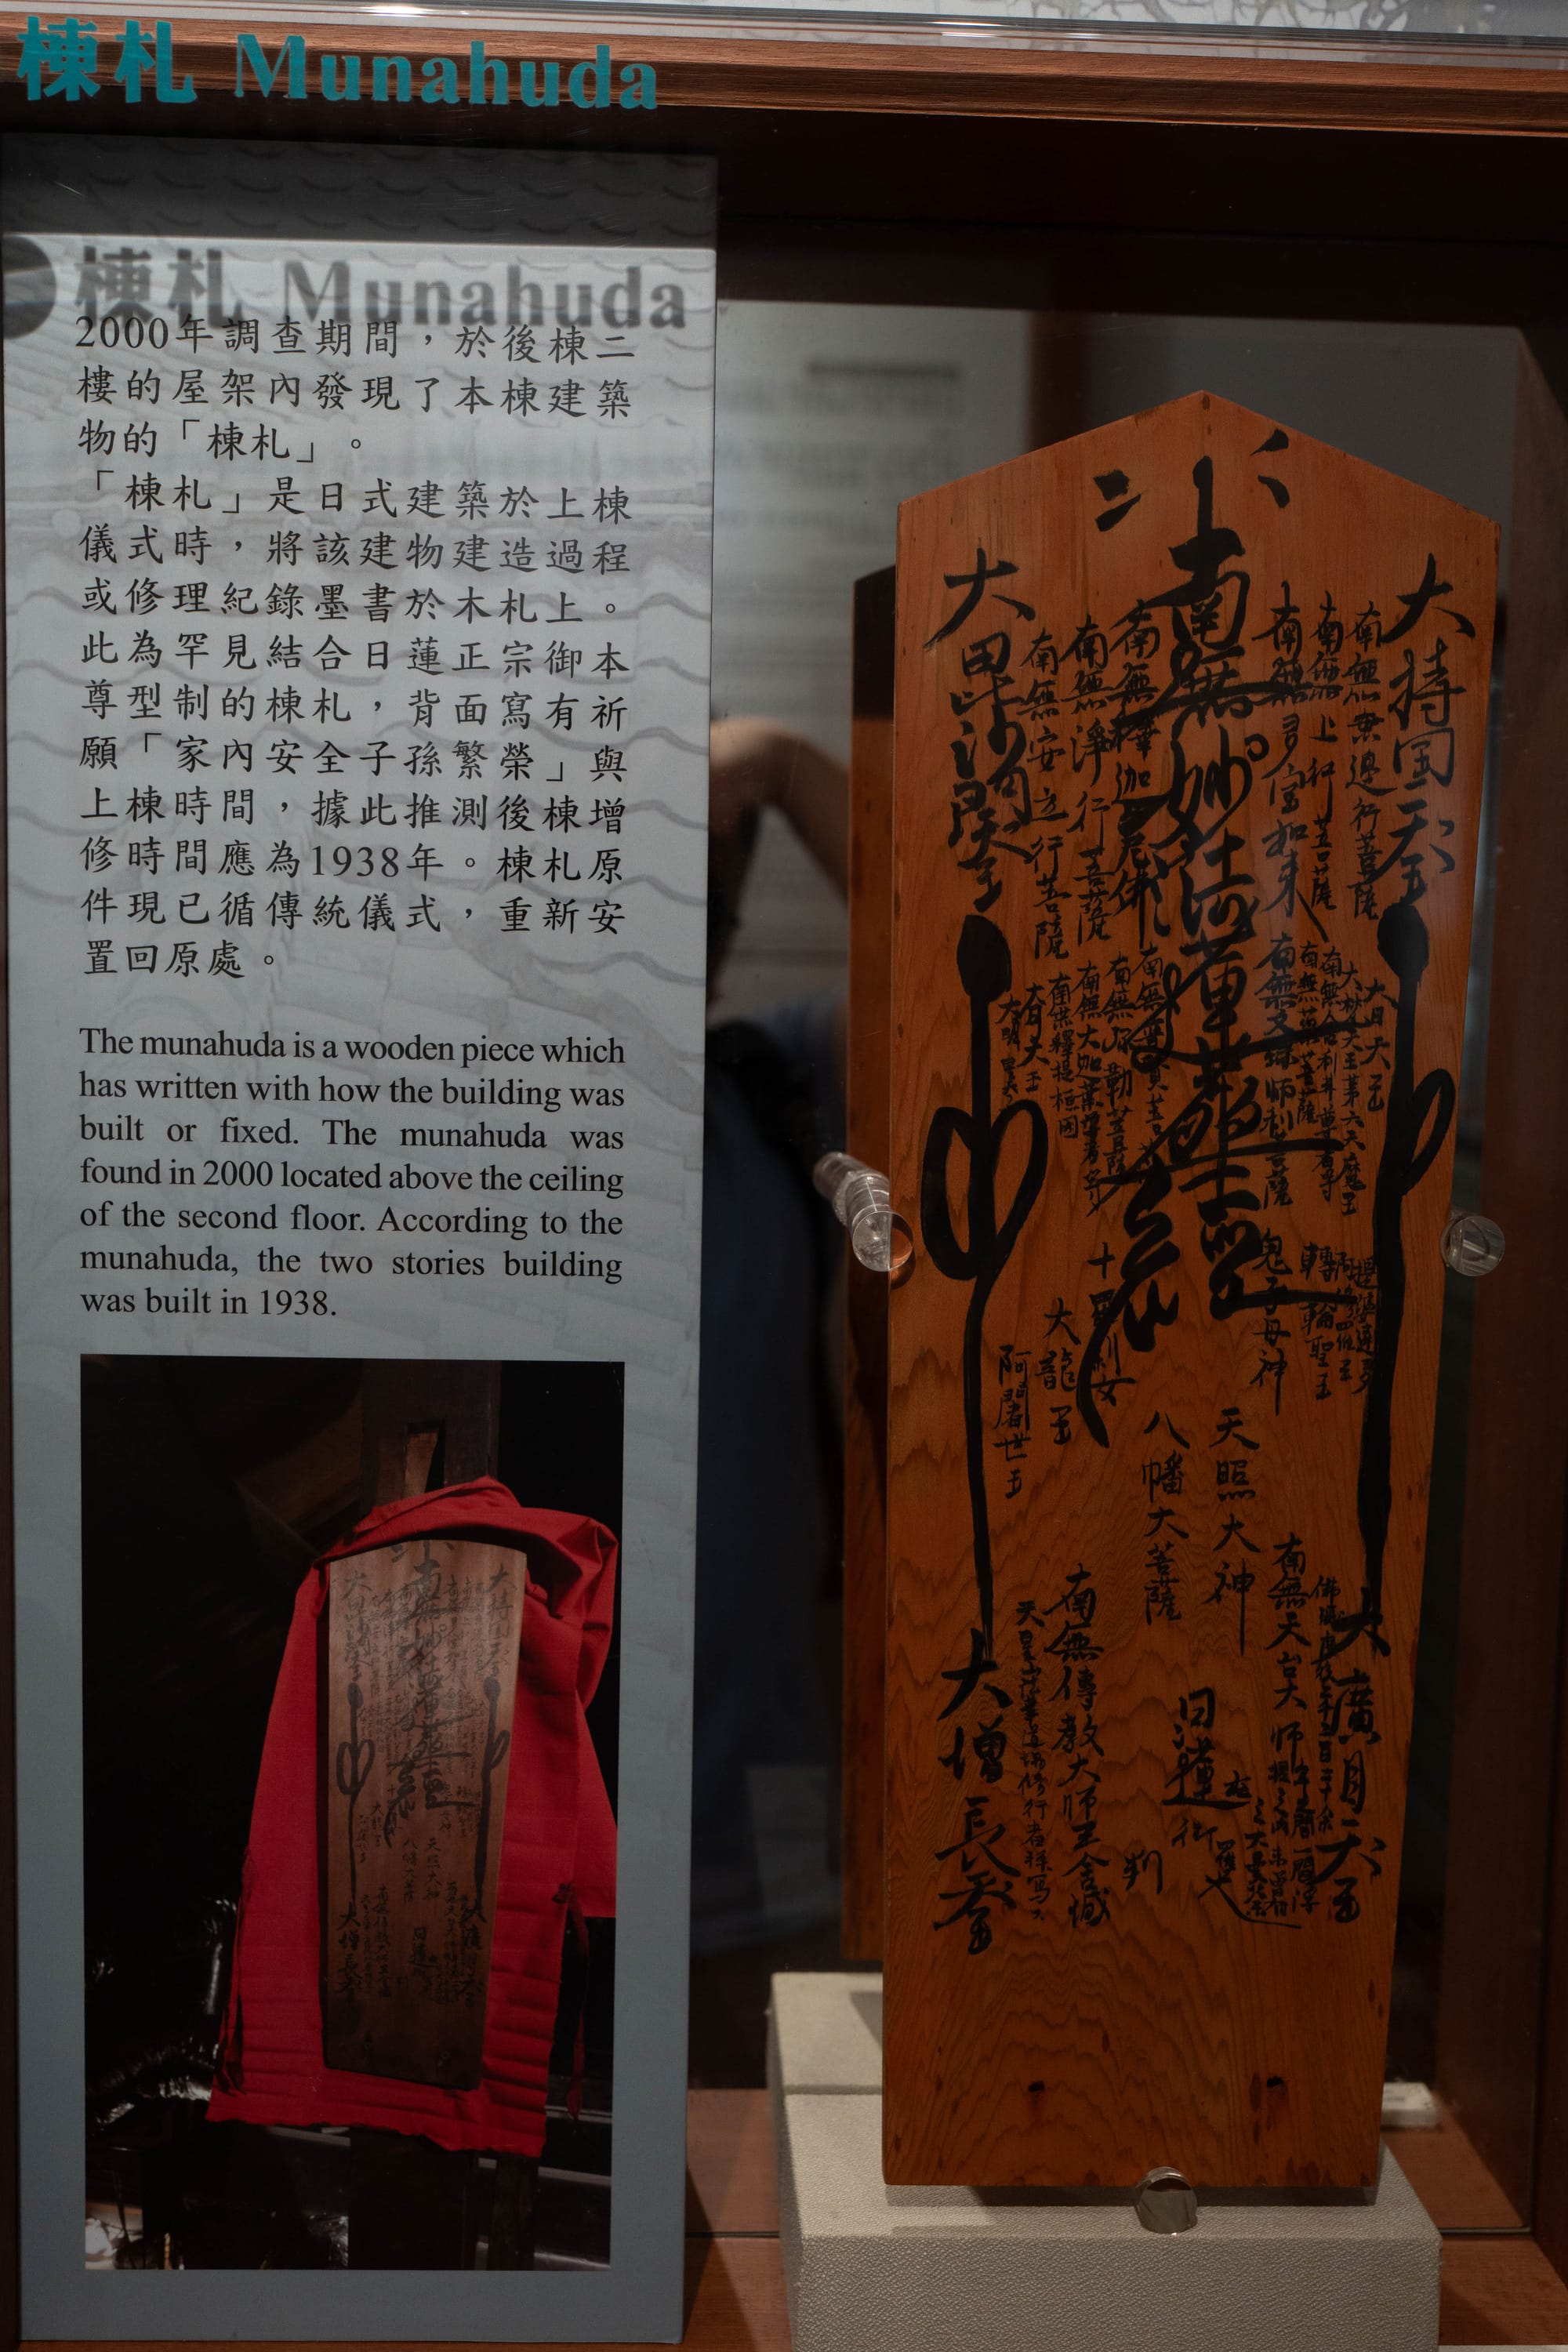 棟札 Munahuda
棟札 Munahuda
2000年調查期間，於後棟二
樓的屋架內發現了本棟建築
物的「棟札」。
「棟札」是日式建築於上棟
儀式時，將該建物建造過程
或修理紀錄墨書於木札上。
此為罕見結合日蓮正宗御本
尊型制的棟札，背面寫有祈
願「家內安全子孫繁榮」與
上棟時間，據此推測後棟增
修時間應為1938年。棟札原
件現已循傳統儀式，重新安
置回原處。
The munahuda is a wooden piece which
has written with how the building was
built or fixed. The munahuda was
found in 2000 located above the ceiling
of the second floor. According to the
munahuda, the two stories building
was built in 1938.
南無妙法蓮華經
大持国天王
南無無邊行菩薩
南無上行菩薩
南無多宝如来
南無釋迦牟尼佛
南無淨行菩薩
南無安立行菩薩
大毘沙門天王
大日天王
南無文殊師利菩薩
南無弥勒菩薩
南無大迦葉尊者
南無釋提桓因
鬼子母神
轉輪聖王
十羅刹女
大龍王
阿闍世王
天照大神
八幡大菩薩
南無天台大師
南無傳教大師
日蓮
大廣目天王
大增長天王